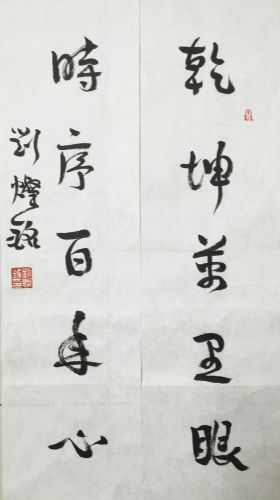 乾坤萬里眼
時序百年心
劉燦銘